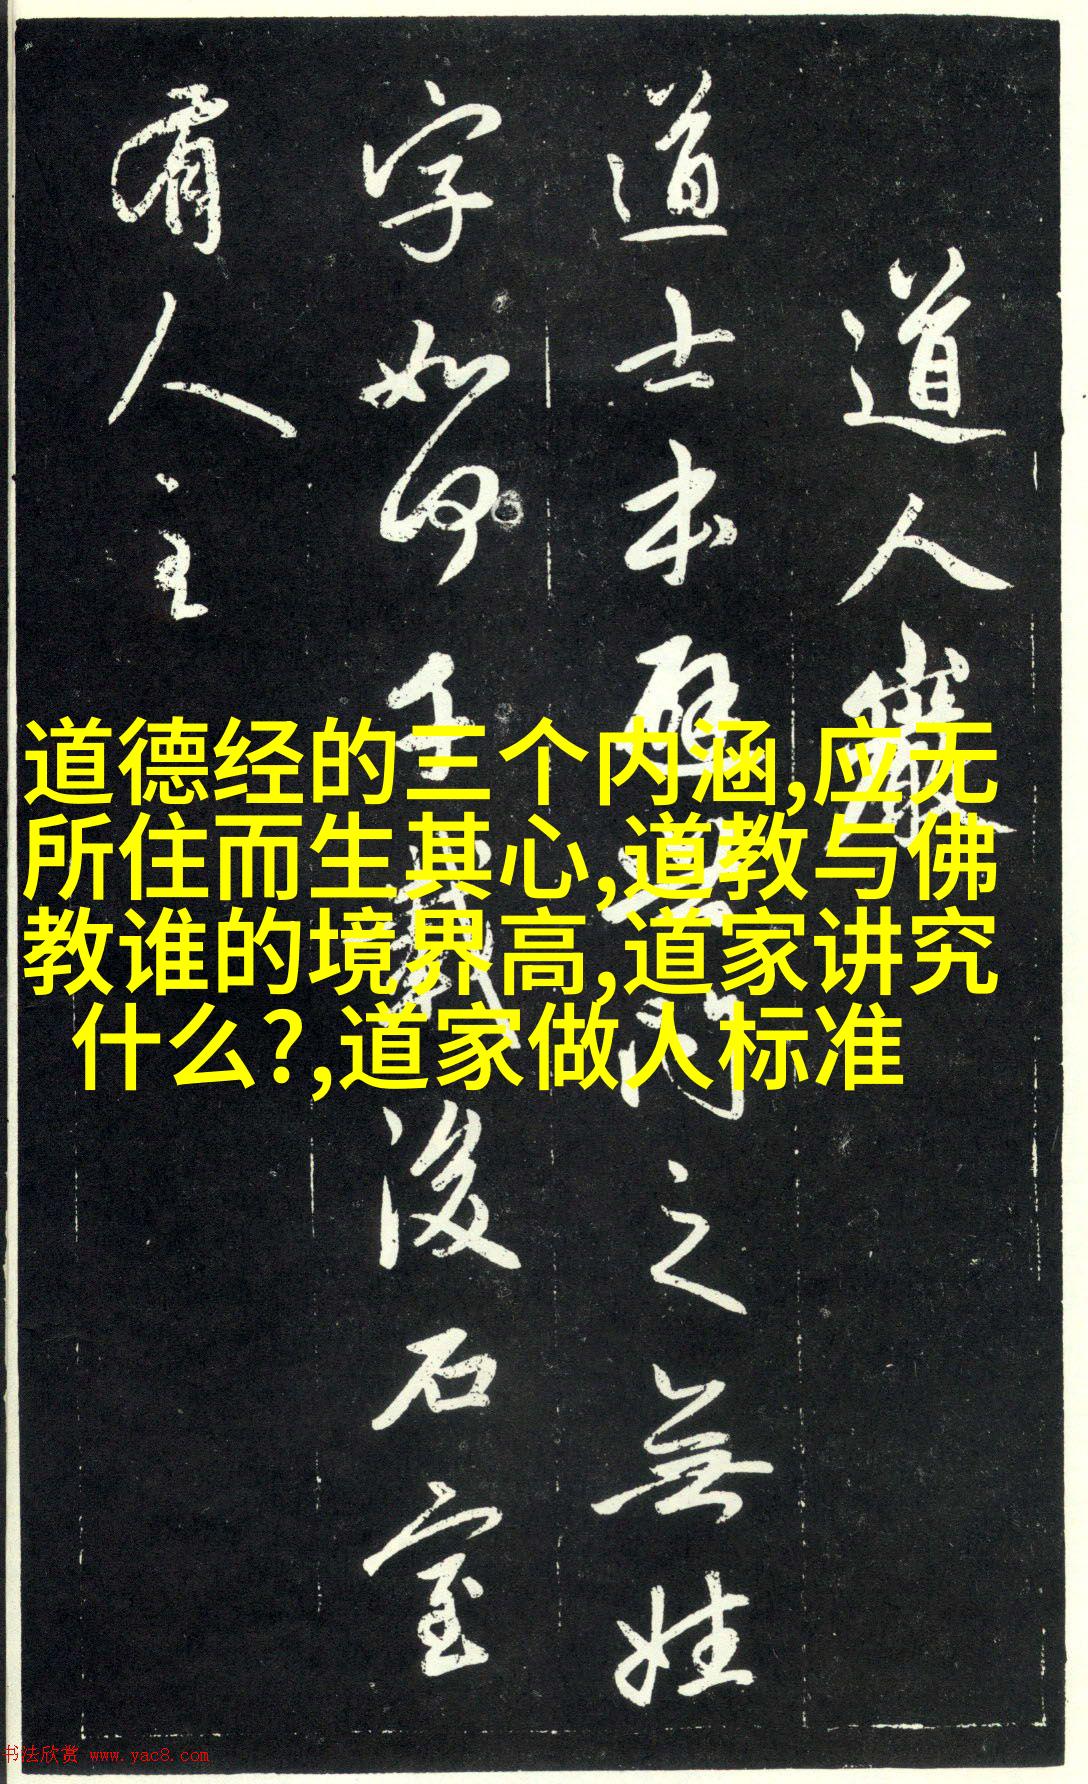 道人巖
道士本避秦問之無姓
字如何千載後石室
有人主
道德经的三个内涵,应无
所住而生其心,道教与佛
教谁的境界高,道家讲究
什么?,道家做人标准
书法欣赏 www.yac8.com